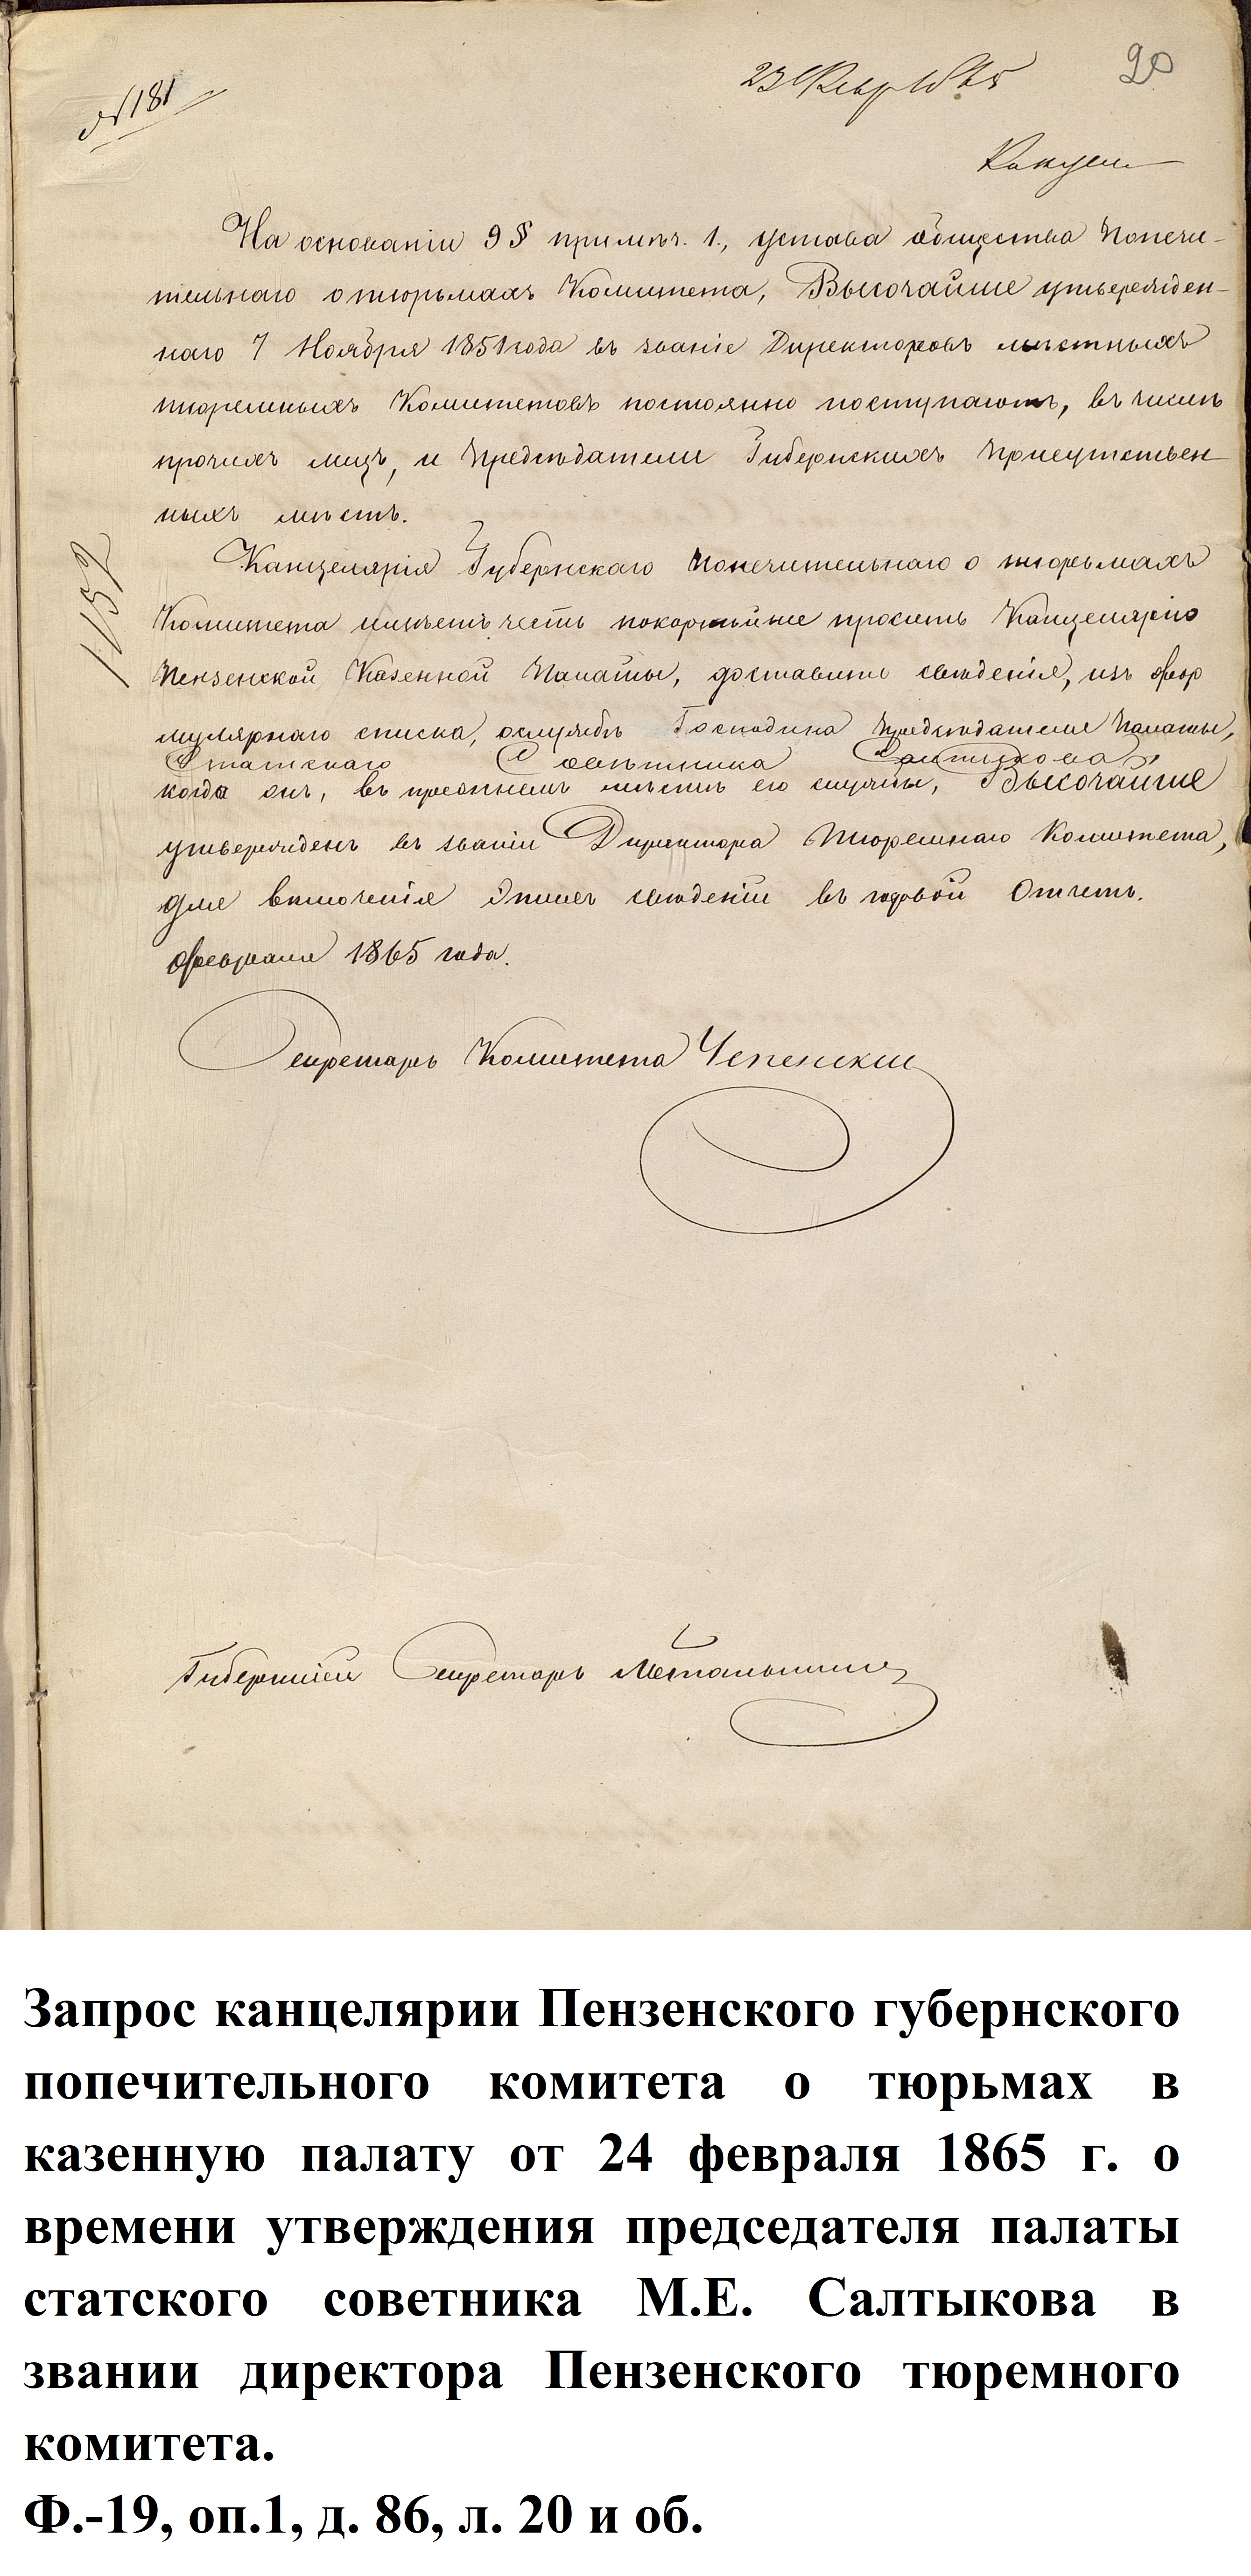 № 181
23 Февр 1865
20
На основаніи 9 § примѣч. 1., устава общества Попечи-
тельнаго о тюрьмахъ Комитета, Высочайше утвержден-
наго 7 Ноября 1851 года въ званіе Директоровъ мѣстныхъ
тюремныхъ Комитетовъ постоянно поступаютъ, въ числѣ
прочихъ лицъ, и Предсѣдатели Губернскихъ Присутствен-
ныхъ мѣстъ.
Канцелярія Губернскаго Попечительнаго о тюрьмахъ
Комитета имѣетъ честь покорнѣйше просить Канцелярію
Пензенской Казенной Палаты, доставить свѣденія, изъ фор
мулярнаго списка, ослужбѣ Господина Предсѣдателя Палаты,
Статскаго Совѣтника Салтыкова,
когда онъ, въ прежнемъ мѣстѣ его службы, Высочайше
утвержденъ въ званіи Директора Тюремнаго Комитета,
для включенія этихъ свѣденій въ годовой Отчетъ.
Февраля 1865 года.
Секретарь Комитета
Губернскій Секретарь
1152
Запрос канцелярии Пензенского губернского
попечительного комитета о тюрьмах в
казенную палату от 24 февраля 1865 г. о
времени утверждения председателя палаты
статского советника М.Е. Салтыкова в
звании директора Пензенского тюремного
комитета.
Ф.-19, оп.1, д. 86, л. 20 и об.